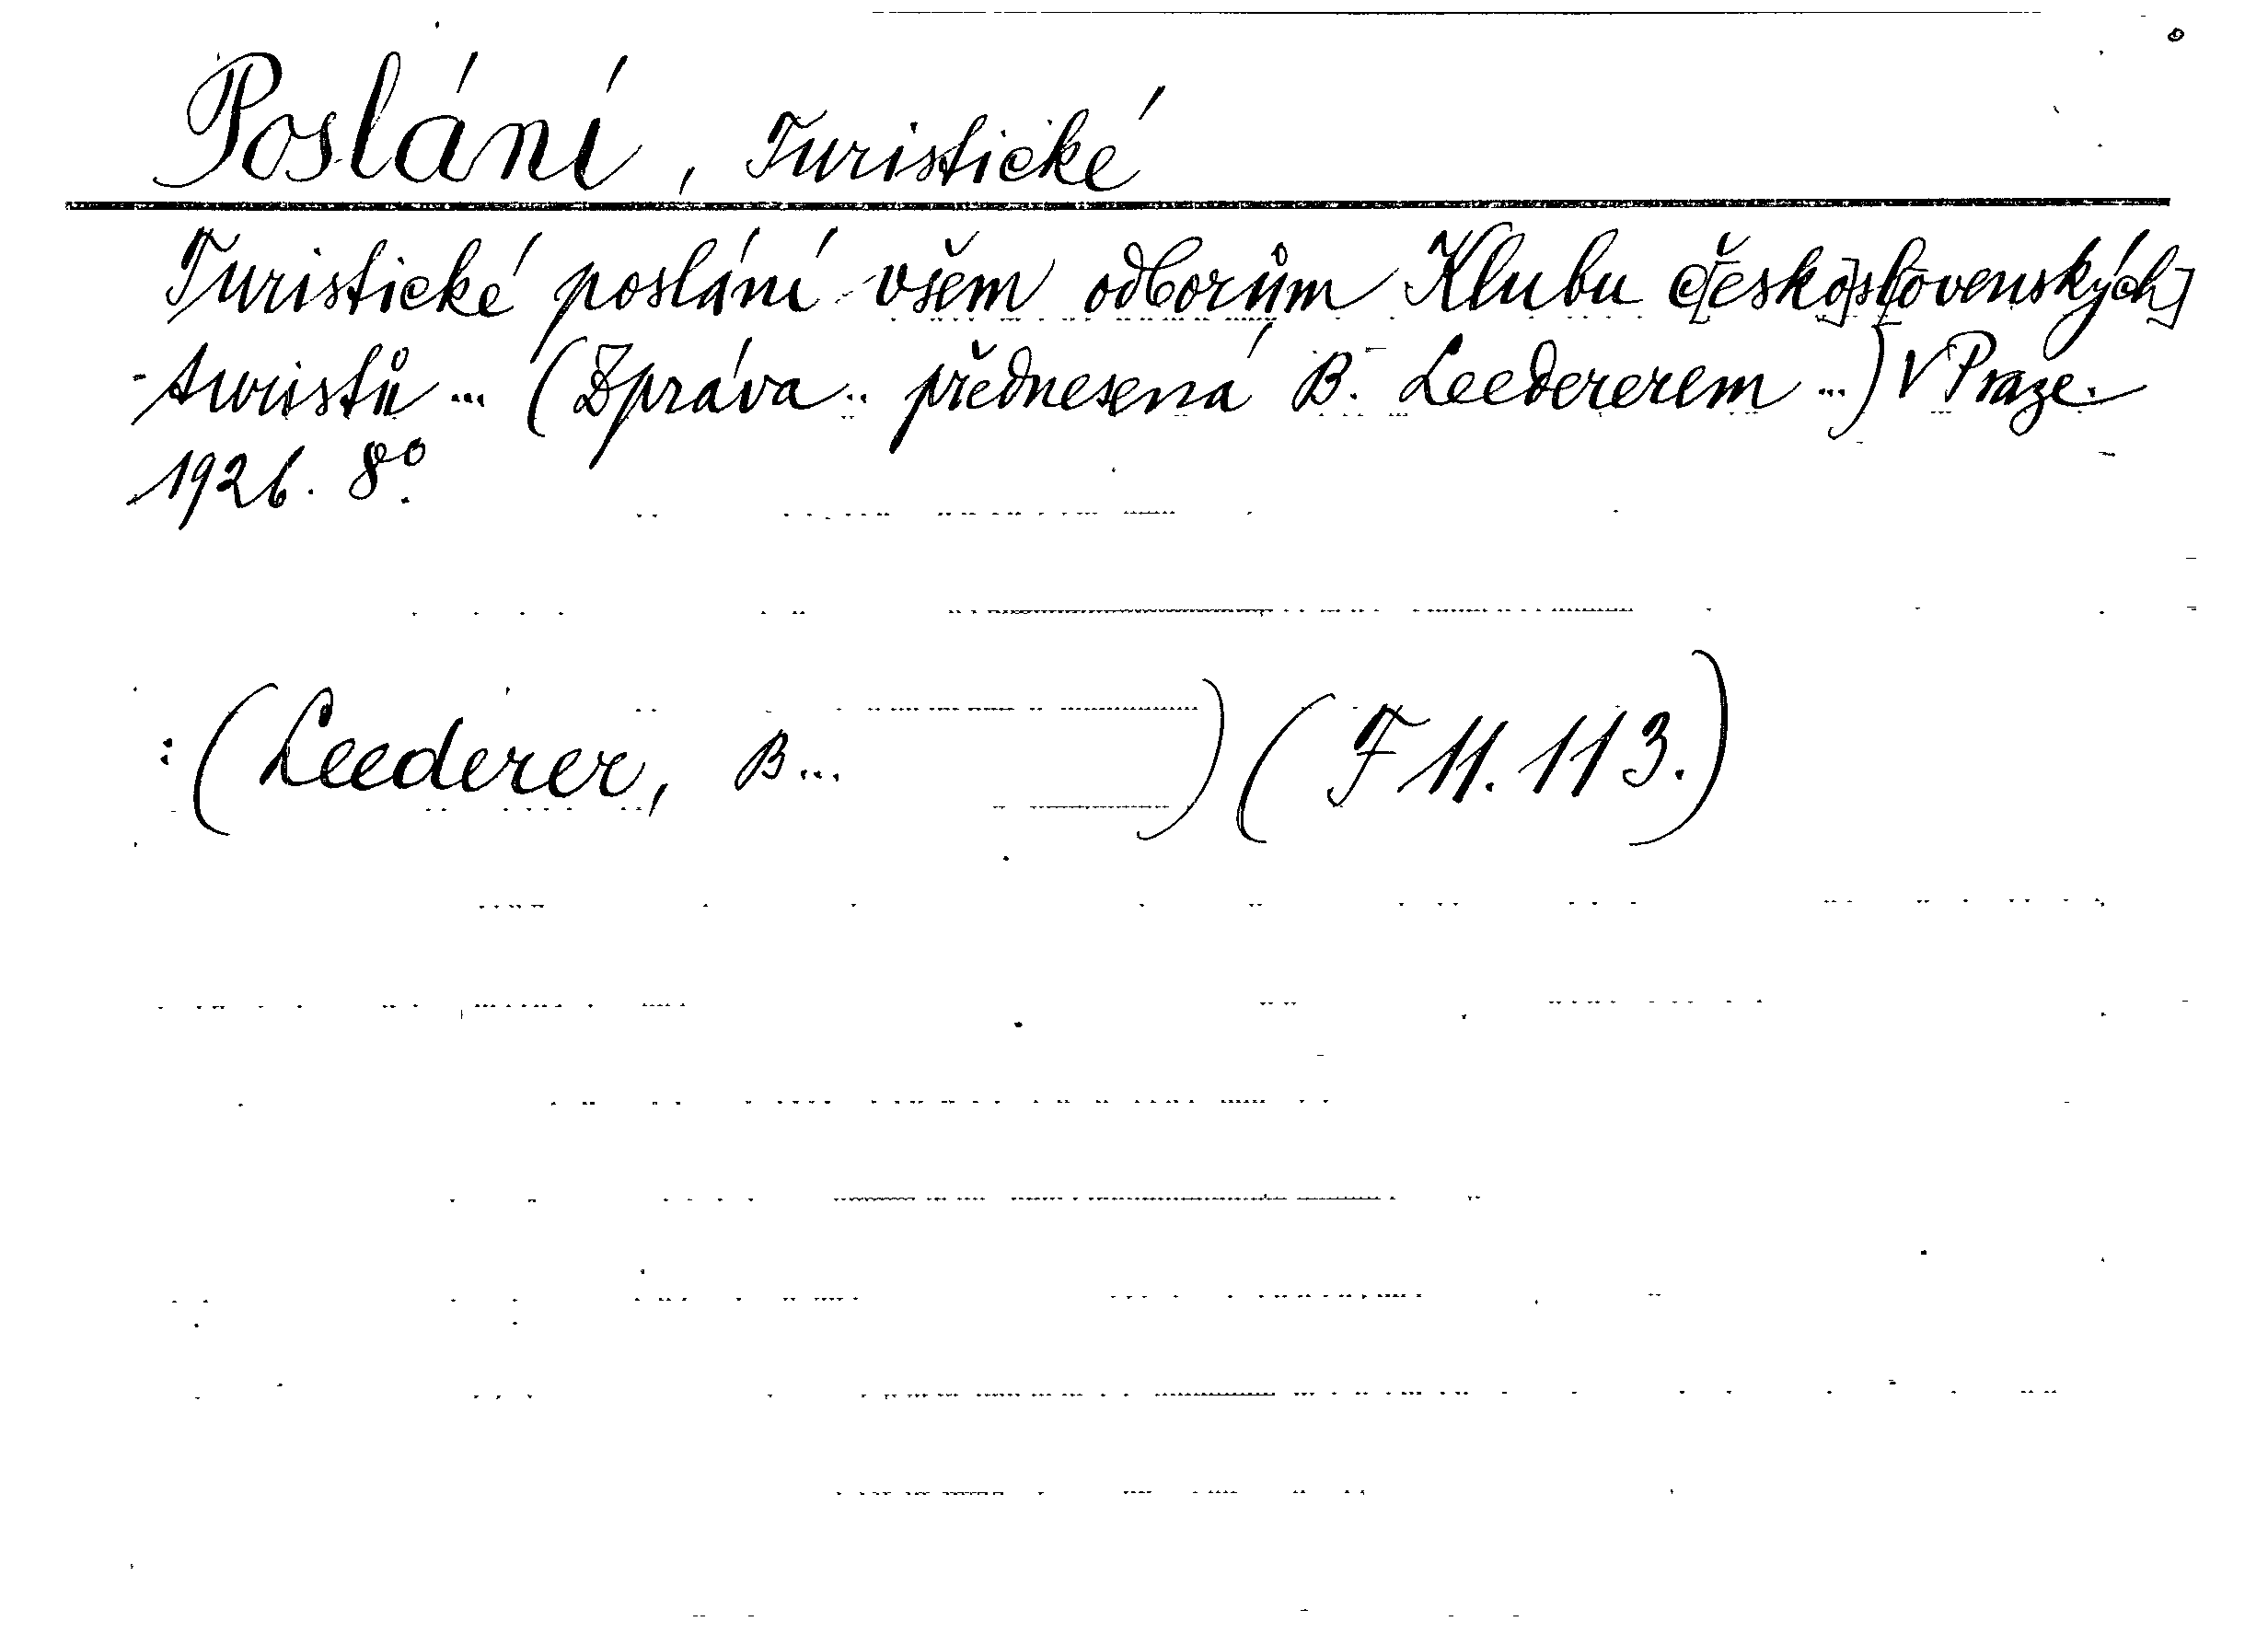 Poslání, Turistické
Turistické poslání všem odborům Klubu č[esko]sl[ovenských]
turistů ... (Zpráva .. přednesená B. Leedererem ...) V Praze.
1926. 8°.
: (Leederer, B... ) (F 11. 113.)